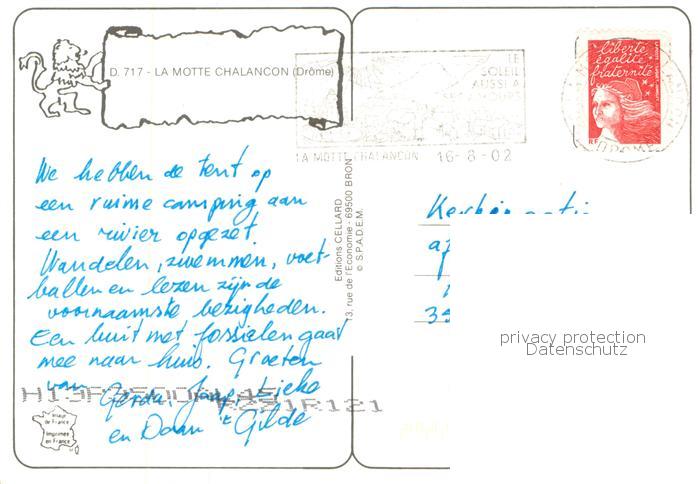 D. 717 - LA MOTTE CHALANCON (Drôme)
LE
SOLEIL
AUSSI A
LA MOTTE CHALANCON 16-8-02
liberté
égalité
fraternité
RF
We hebben de tent op
een ruime camping aan
een rivier opgezet.
Wandelen, zwemmen, voet-
ballen en lezen zijn de
voornaamste bezigheden.
Een buit met fossielen gaat
mee naar huis. Groeten
van Gerda, Jaap, Lieke
en Daan 't Gilde
Editions CELLARD
13, rue de l'Economie - 69500 BRON
© S.P.A.D.E.M.
Image
de France
Imprimée
en France
privacy protection
Datenschutz